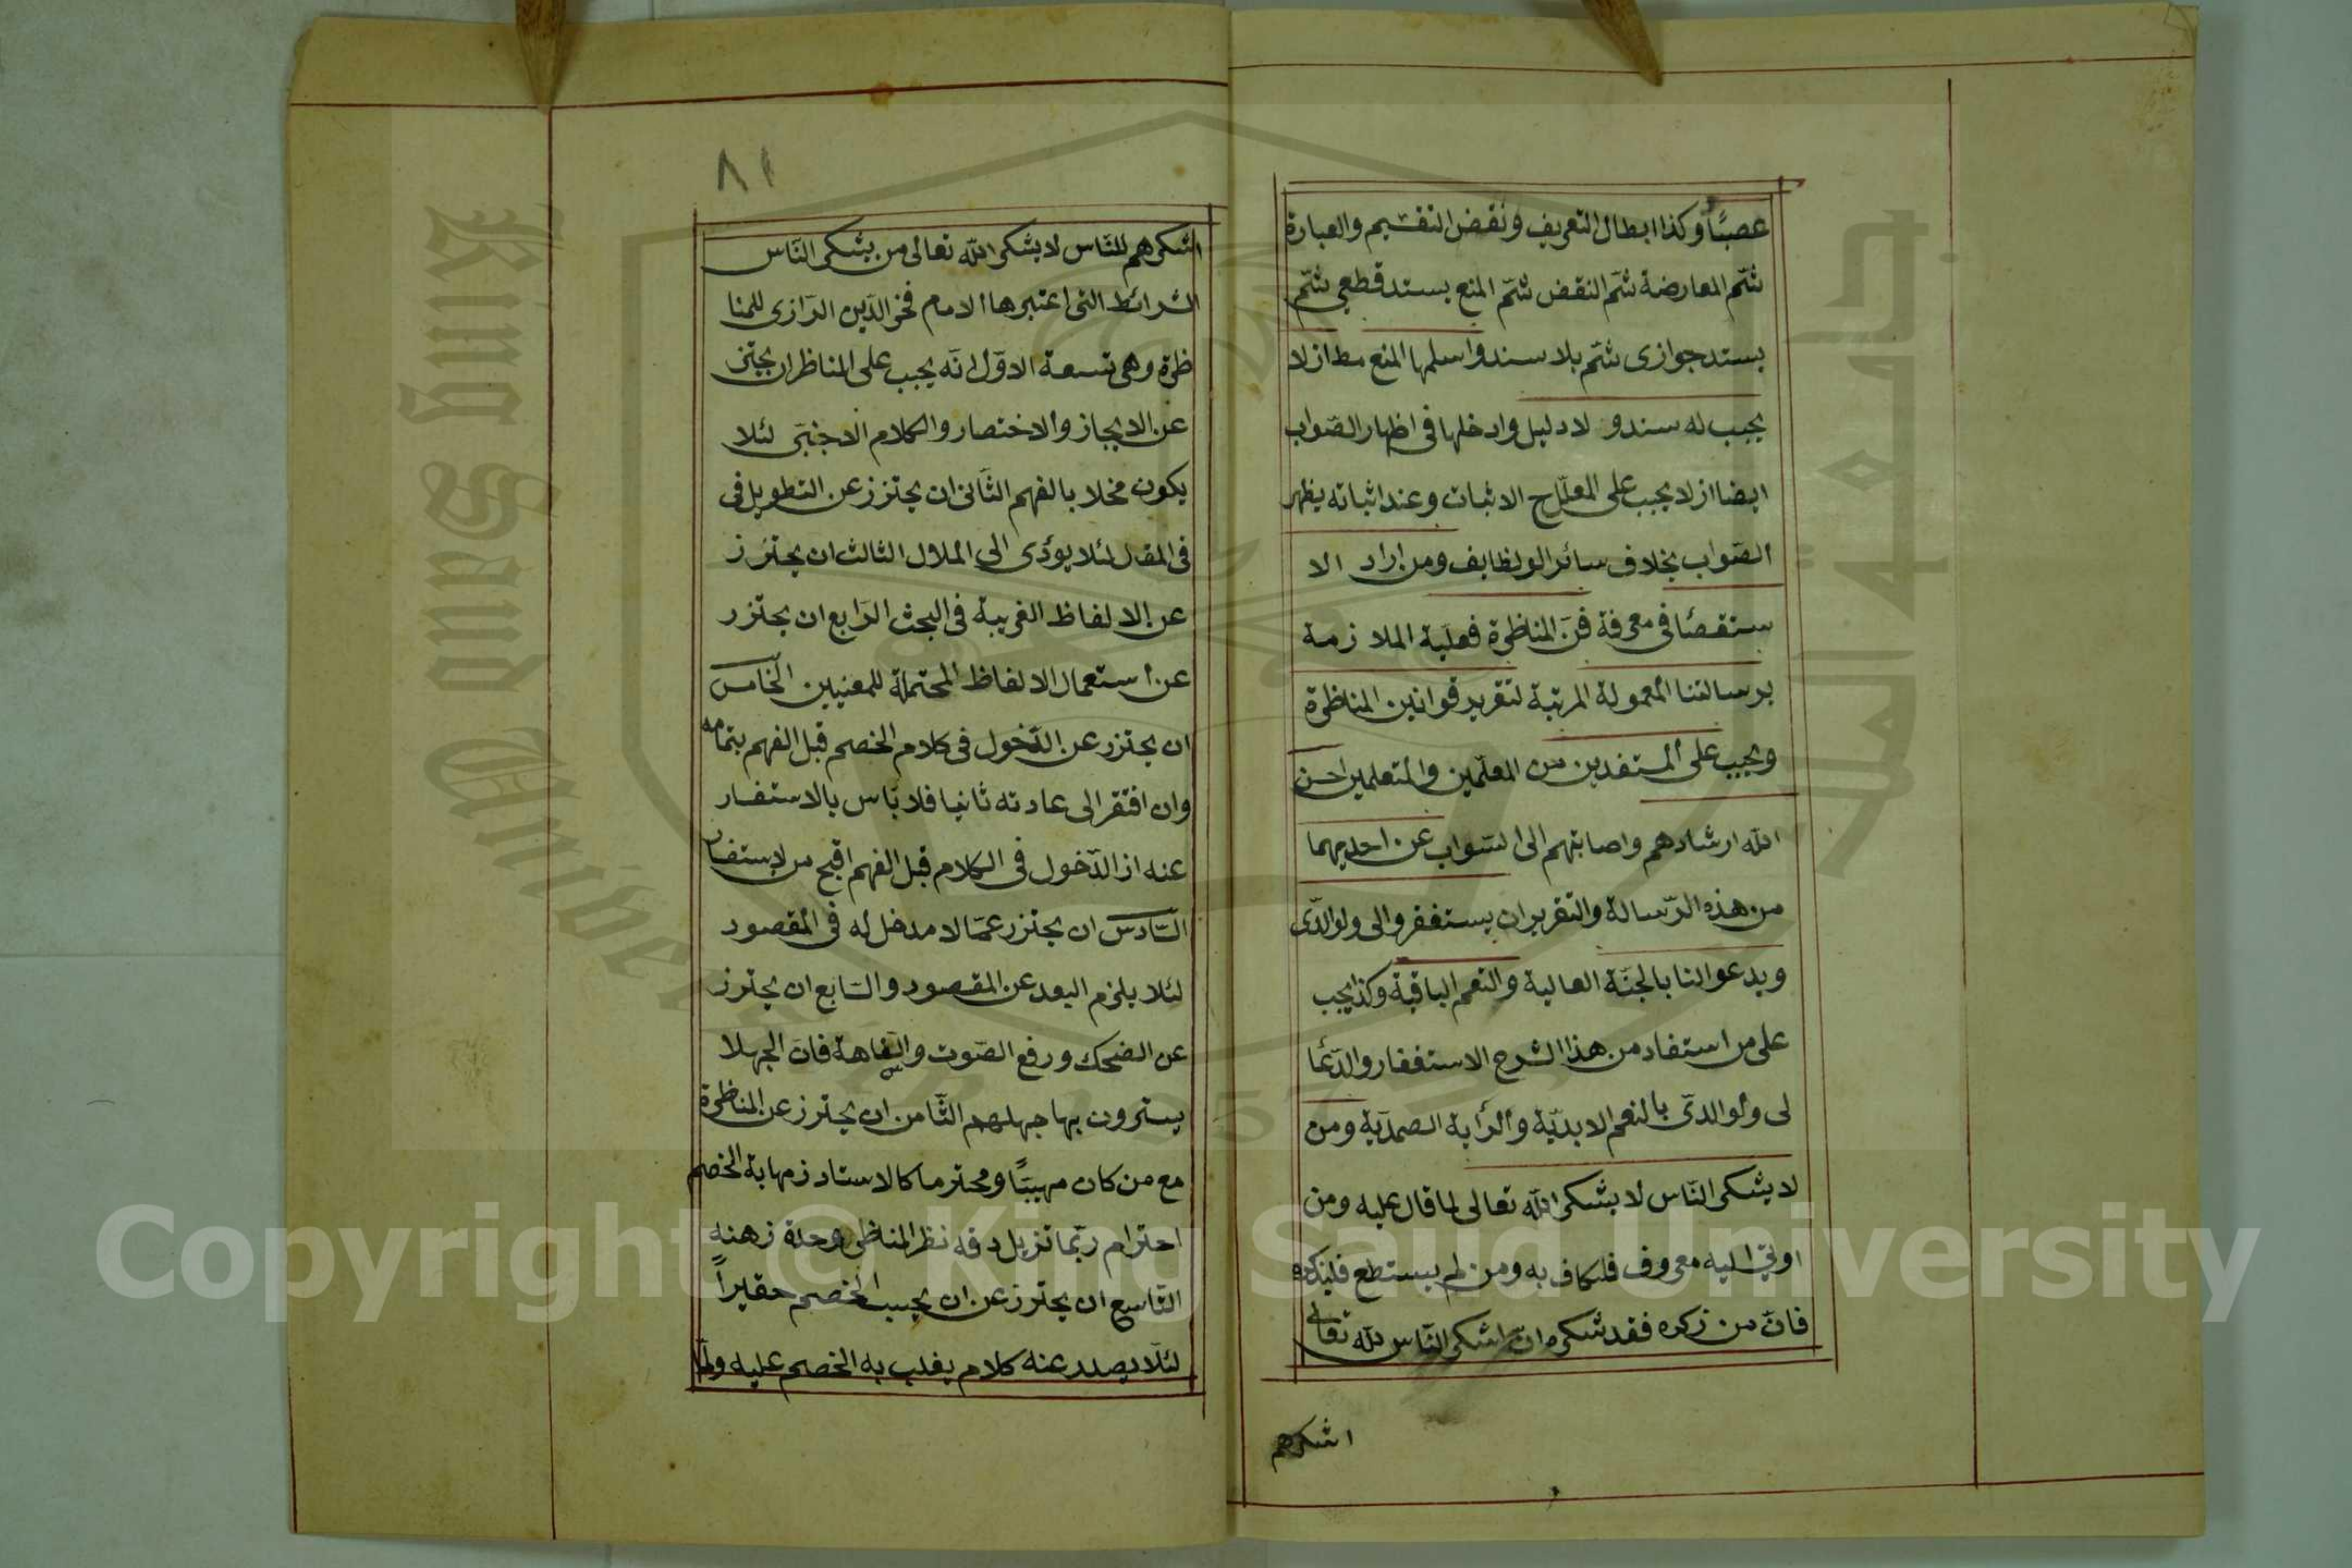 عصبًا وكذا ابطال التعريف ونقض التقسيم والعبارة
ثتم المعارضة ثتم النقض ثتم المنع بسند قطعي ثتم
بسند جوازى ثتم بلا سند واسلمها المنع مط از لا
يجب له سند و لا دليل وادخلها فى اظهار الصواب
ايضا از لا يجب على المعلّل ح الاثبات وعند اثباته يظهر
الصواب بخلاف سائر الوظايف ومن اراد الا
ستقصأ فى معرفة فنّ المناظرة فعليه الملا زمة
برسالتنا المعمولة المرتبة لتقرير قوانين المناظرة
ويجب على المستفدين من المعلّمين والمتعلمين احسن
الله ارشادهم واصابتهم الى الثواب عن احديهما
من هذه الرسالة والتقرير ان يستغفروا لى ولوالدّى
ويدعوا لنا بالجنّة العالية والنعم الباقية وكذا يجب
على من استفاد من هذا الشرح الاستغفار والدّعأ
لى ولوالدىّ بالنعم الابديّة والرأية الصمديّة ومن
لا يشكر النّاس لا يشكر الله تعالى لما قال عليه ومن
اوتى اليه معروف فليكاف به ومن لم يستطع فليذكره
فانّ من زكره فقد شكره وانّ اشكر النّاس لله تعالى
اشكرهم
٨١
اشكرهم للنّاس لا يشكر الله تعالى من يشكر النّاس
الشرائط التى اعتبرها الامام فخر الدّين الرّازى للمنا
ظرة وهى تسعة الاوّل انّه يجب على المناظر ان يجتنى
عن الايجاز والاختصار والكلام الاجنبىّ لئلا
يكون مخلا بالفهم الثّانى ان يحتزز عن التطويل فى
فى المقال لئلا يؤدى الى الملال الثالث ان يحتزز
عن الالفاظ الغريبة فى البحث الرّابع ان يحتزر
عن استعمال الالفاظ المحتملة للمعنيين الخّامس
ان يحتزر عن الدّخول فى كلام الخصم قبل الفهم بتمامه
وان افتقر الى عادته ثانيا فلا بّاس بالاستفسار
عنه از الدّخول فى الكلام قبل الفهم اقبح من الاستفسار
السّادس ان يحتزر عمّا لا مدخل له فى المقصود
لئلا يلزم البعد عن المقصود والسّابع ان يحترز
عن الضحك ورفع الصّوت والسّفاهة فانّ الجهلا
يسترون بها جهلهم الثّامن ان يحترز عن المناظرة
مع من كان مهيبًا ومحترما كالاستاد زمهابة الخصم
احترام ربّما تزيل دقه نظر المناظر وحدة زهنه
التّاسع ان يحترز عن ان يحسب الخصم حقيراً
لئلّا يصدر عنه كلام يغلب به الخصم عليه ولمّا